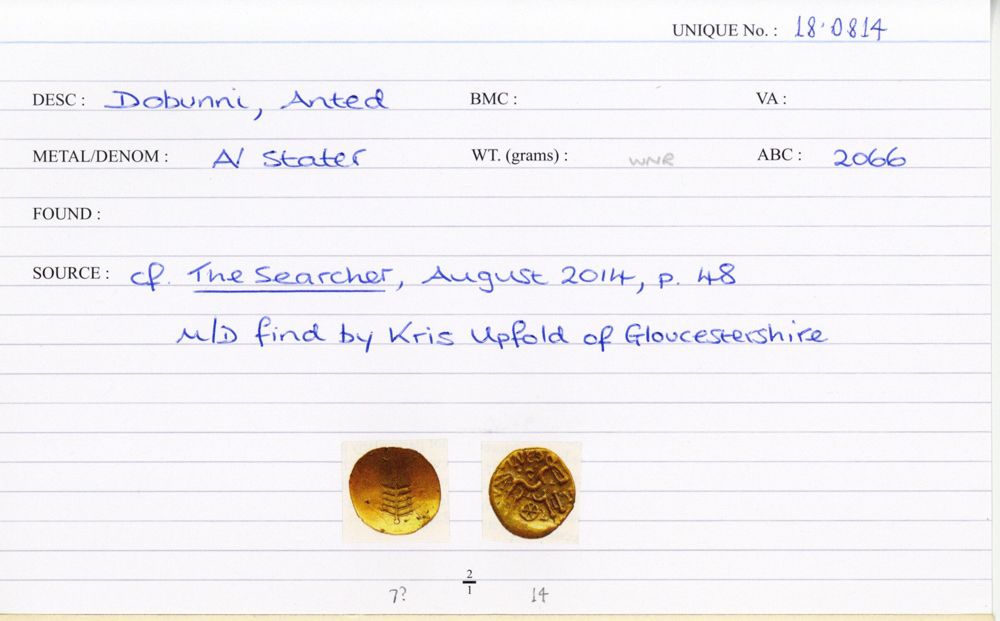 UNIQUE No. : 18.0814
DESC : Dobunni, Anted BMC : VA :
METAL/DENOM : A/ Stater WT. (grams) : WNR ABC : 2066
FOUND :
SOURCE : cf. The Searcher, August 2014, p. 48
M/D find by Kris Upfold of Gloucestershire
2
1
7? 14